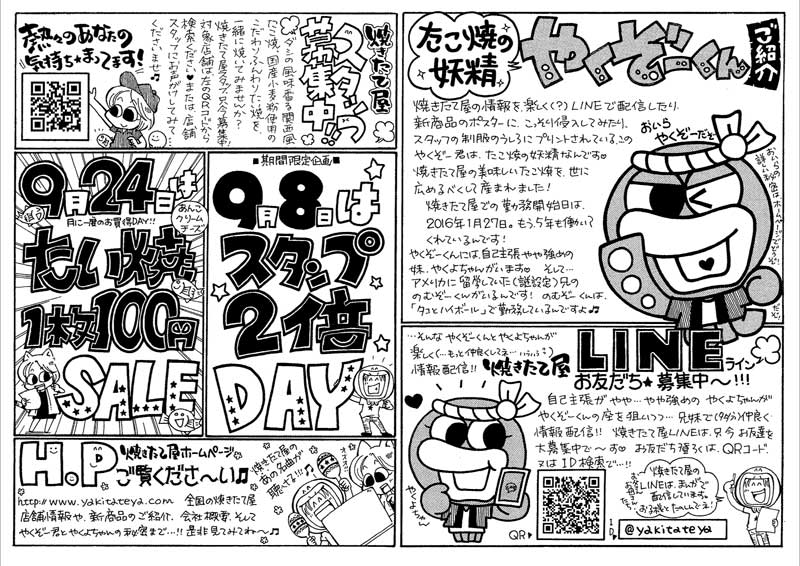 たこ焼の
妖精
やくぞーくん。
ご紹介
焼きたて屋の情報を、楽しく(?)LINEで配信したり、
新商品のポスターに、こっそり侵入してみたり、
スタッフの制服のうしろにプリントされている、この
やくぞー君は、たこ焼の妖精なんです♥
焼きたて屋の美味しいたこ焼を、世に
広めるべくして産まれました!
焼きたて屋での勤務開始日は、
2016年1月27日。もう5年も働いて
くれているんです!
やくぞーくんには、自己主張やや強めの
妹、やくよちゃんがいます♥そして…
アメリカに留学していた(謎設定)兄の
のむぞーくんがいるんです!のむぞーくんは、
「タコとハイボール」で勤務しているんですよ♫
おいら
やくぞーだぞ
おいらの
詳しい秘密は
ホームページでどうぞ!
だぞ。
…そんなやくぞーくんとやくよちゃんが
楽しく…もっと仲良くしてネ…
情報配信!!焼きたて屋
LINE
ライン
お友だち★募集中〜!!!
自己主張がやや…やや強めのやくよちゃんが
やくぞーくんの座を狙いつつ…兄妹で(多分)仲良く
情報配信!!焼きたて屋LINEは、只今お友達を
大募集中で〜す♥お友だち登録は、QRコード、
又はID検索で…!!
やくよちゃん
焼きたて屋の
LINEは、まんがで
配信しています。
お子様とたのしんでネ!
QR▶
ID▶
@yakitateya
焼きたて屋
スタッフ
募集中!!
ダシの風味香る関西風
たこ焼、国産小麦粉使用の
こだわりふんわりたい焼を、
一緒に焼いてみませんか?
焼きたて屋スタッフさん募集!
対象店舗は左のQRコードから
検索ください♥または、店舗
スタッフにお声がけしてみて
くださいませ♫
熱々のあなたの
気持ち★まってます!
■期間限定企画■
9月8日は
スタンプ
2倍
DAY
9月24日は
月に一度のお買得DAY!!
あんこ
クリーム
チーズ
たい焼
1枚100円
SALE
H.P
焼きたて屋ホームページ
ご覧くださ〜い♫
焼きたて屋の
あの名曲が
聴けます!!♫
http://www.yakitateya.com 全国の焼きたて屋
店舗情報や、新商品のご紹介、会社概要、そして
やくぞー君とやくよちゃんの秘密まで…!!是非見てみてね〜♫